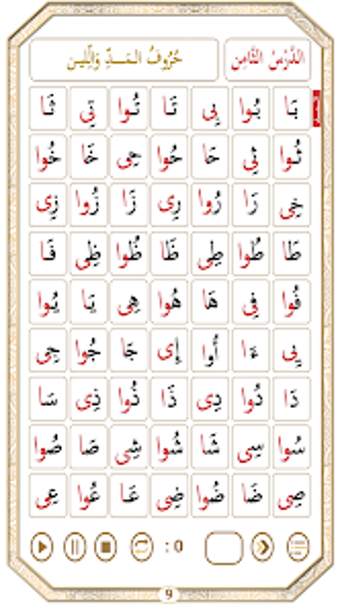 الدَّرْسُ الثَّامِن حُرُوفُ الْمَـدِّ وَاللِّين
بَا بُوا بِى تَا تُوا تِى ثَا
ثُوا ثِى حَا حُوا حِى خَا خُوا
خِى رَا رُوا رِى زَا زُوا زِى
طَا طُوا طِى ظَا ظُوا ظِى فَا
فُوا فِى هَا هُوا هِى يَا يُوا
يِى ءَا أُوا إِى جَا جُوا جِى
دَا دُوا دِى ذَا ذُوا ذِى سَا
سُوا سِى شَا شُوا شِى صَا صُوا
صِى ضَا ضُوا ضِى عَا عُوا عِى
: 0
9